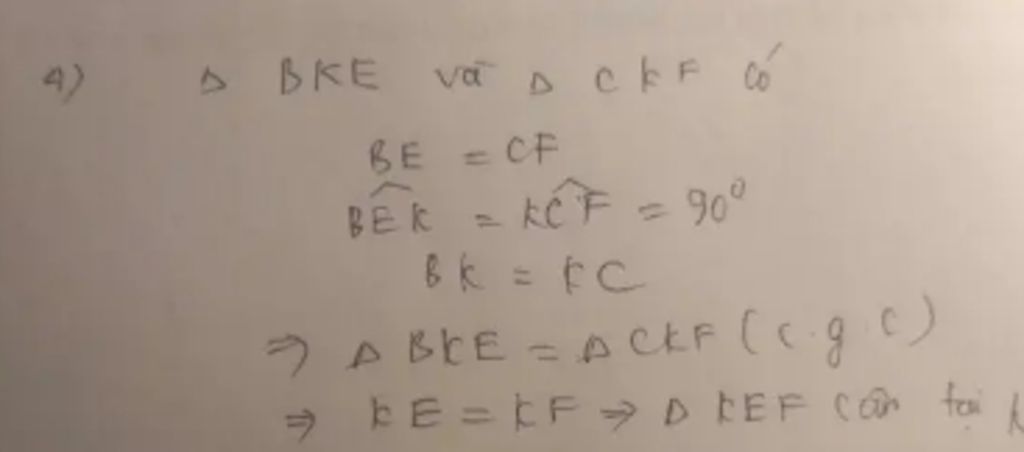 4) Δ BKE và Δ CKF có
BE = CF
BÊK = KĈF = 90⁰
BK = KC
⇒ Δ BKE = Δ CKF (c.g.c)
⇒ KE = KF ⇒ Δ KEF cân tại K